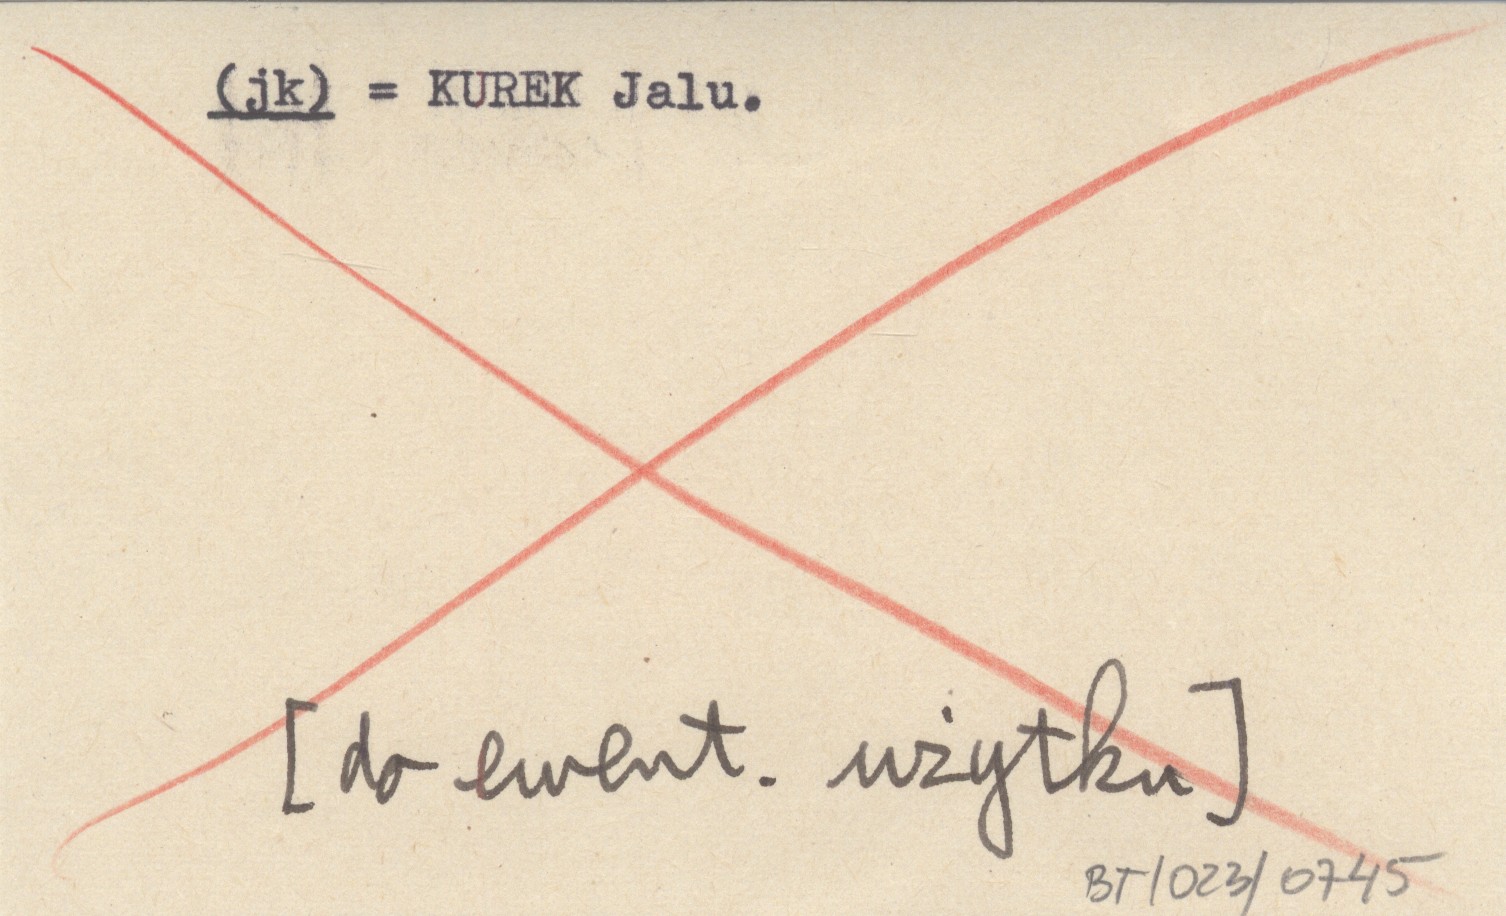 (jk) = KUREK Jalu.
[do ewent. użytku]
BT/023/0745